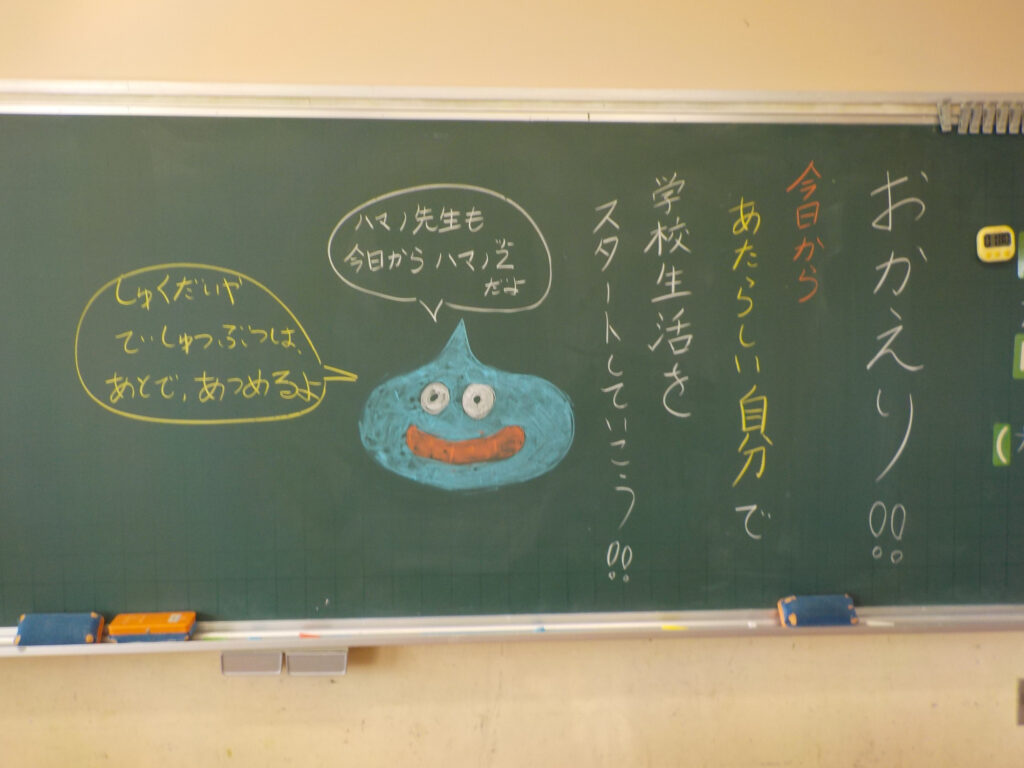 おかえり!!
今日から
あたらしい自分で
学校生活を
スタートしていこう!!
ハマノ先生も
今日からハマノ
だよ
しゅくだいや
ていしゅつぶつは、
あとで、あつめるよ